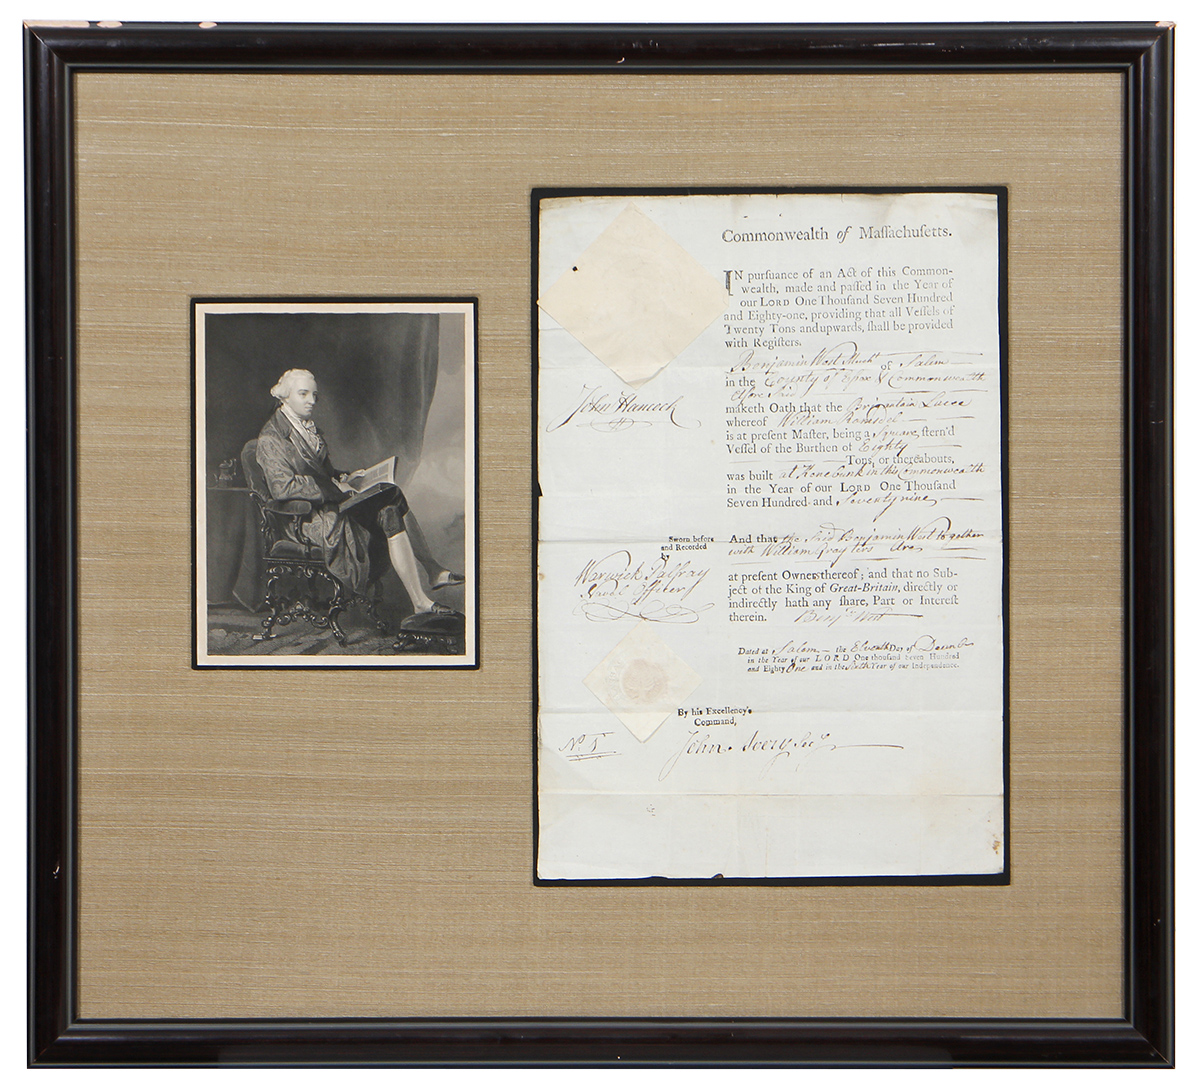 Commonwealth of Maſſachuſetts.
IN purſuance of an Act of this Common-
wealth, made and paſſed in the Year of
our LORD One Thouſand Seven Hundred
and Eighty-one, providing that all Veſſels of
Twenty Tons and upwards, ſhall be provided
with Regiſters.
Benjamin West Mercht of Salem
in the County of Essex & Commonwealth
afore Said
maketh Oath that the Brigantain
whereof William
is at present Master, being a Square, ſtern'd
Veſſel of the Burthen of Eighty
Tons, or thereabouts,
was built at Kenebunk in this Commonwealth
in the Year of our LORD One Thouſand
Seven Hundred and Seventy nine
And that the Said Benjamin West together
with William Gray
at preſent Owners thereof; and that no Sub-
ject of the King of Great-Britain, directly or
indirectly hath any ſhare, Part or Intereſt
therein. Benj West
Dated at Salem the Eleventh Day of Decemb
in the Year of our LORD One thouſand Seven Hundred
and Eighty One and in the Sixth Year of our Independence.
John Hancock
Sworn before
and Recorded
by
Warwick Palfray
Naval Officer
By his Excellency's
Command,
John Avery Secy
No. 5